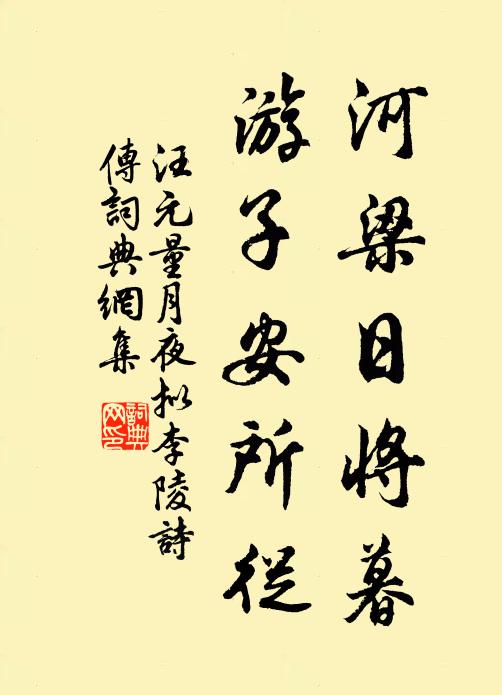 河梁日將暮
游子安所從
汪元量月夜拟李陵詩
傳詞典網集
詞典
网印